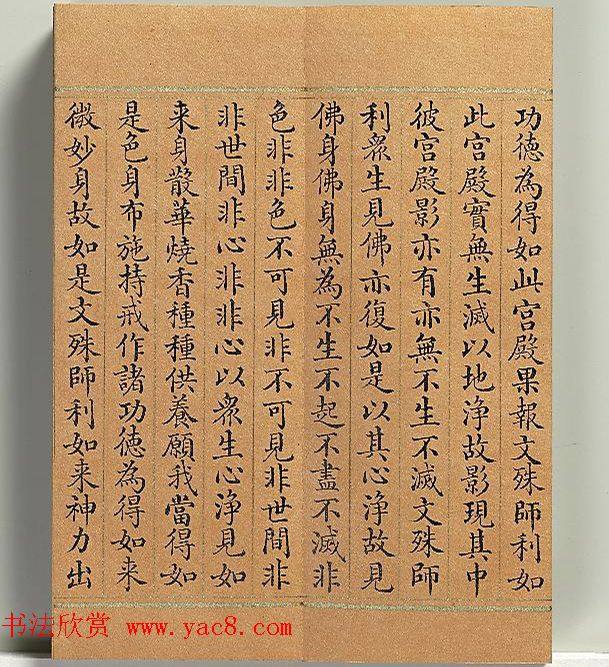 功德為得如此宫殿果報文殊師利如
此宫殿實無生滅以地浄故影現其中
彼宫殿影亦有亦無不生不滅文殊師
利衆生見佛亦復如是以其心浄故見
佛身佛身無為不生不起不盡不滅非
色非非色不可見非不可見非世間非
非世間非心非非心以衆生心浄見如
来身散華燒香種種供養願我當得如
是色身布施持戒作諸功德為得如来
微妙身故如是文殊師利如来神力出
书法欣赏 www.yac8.com